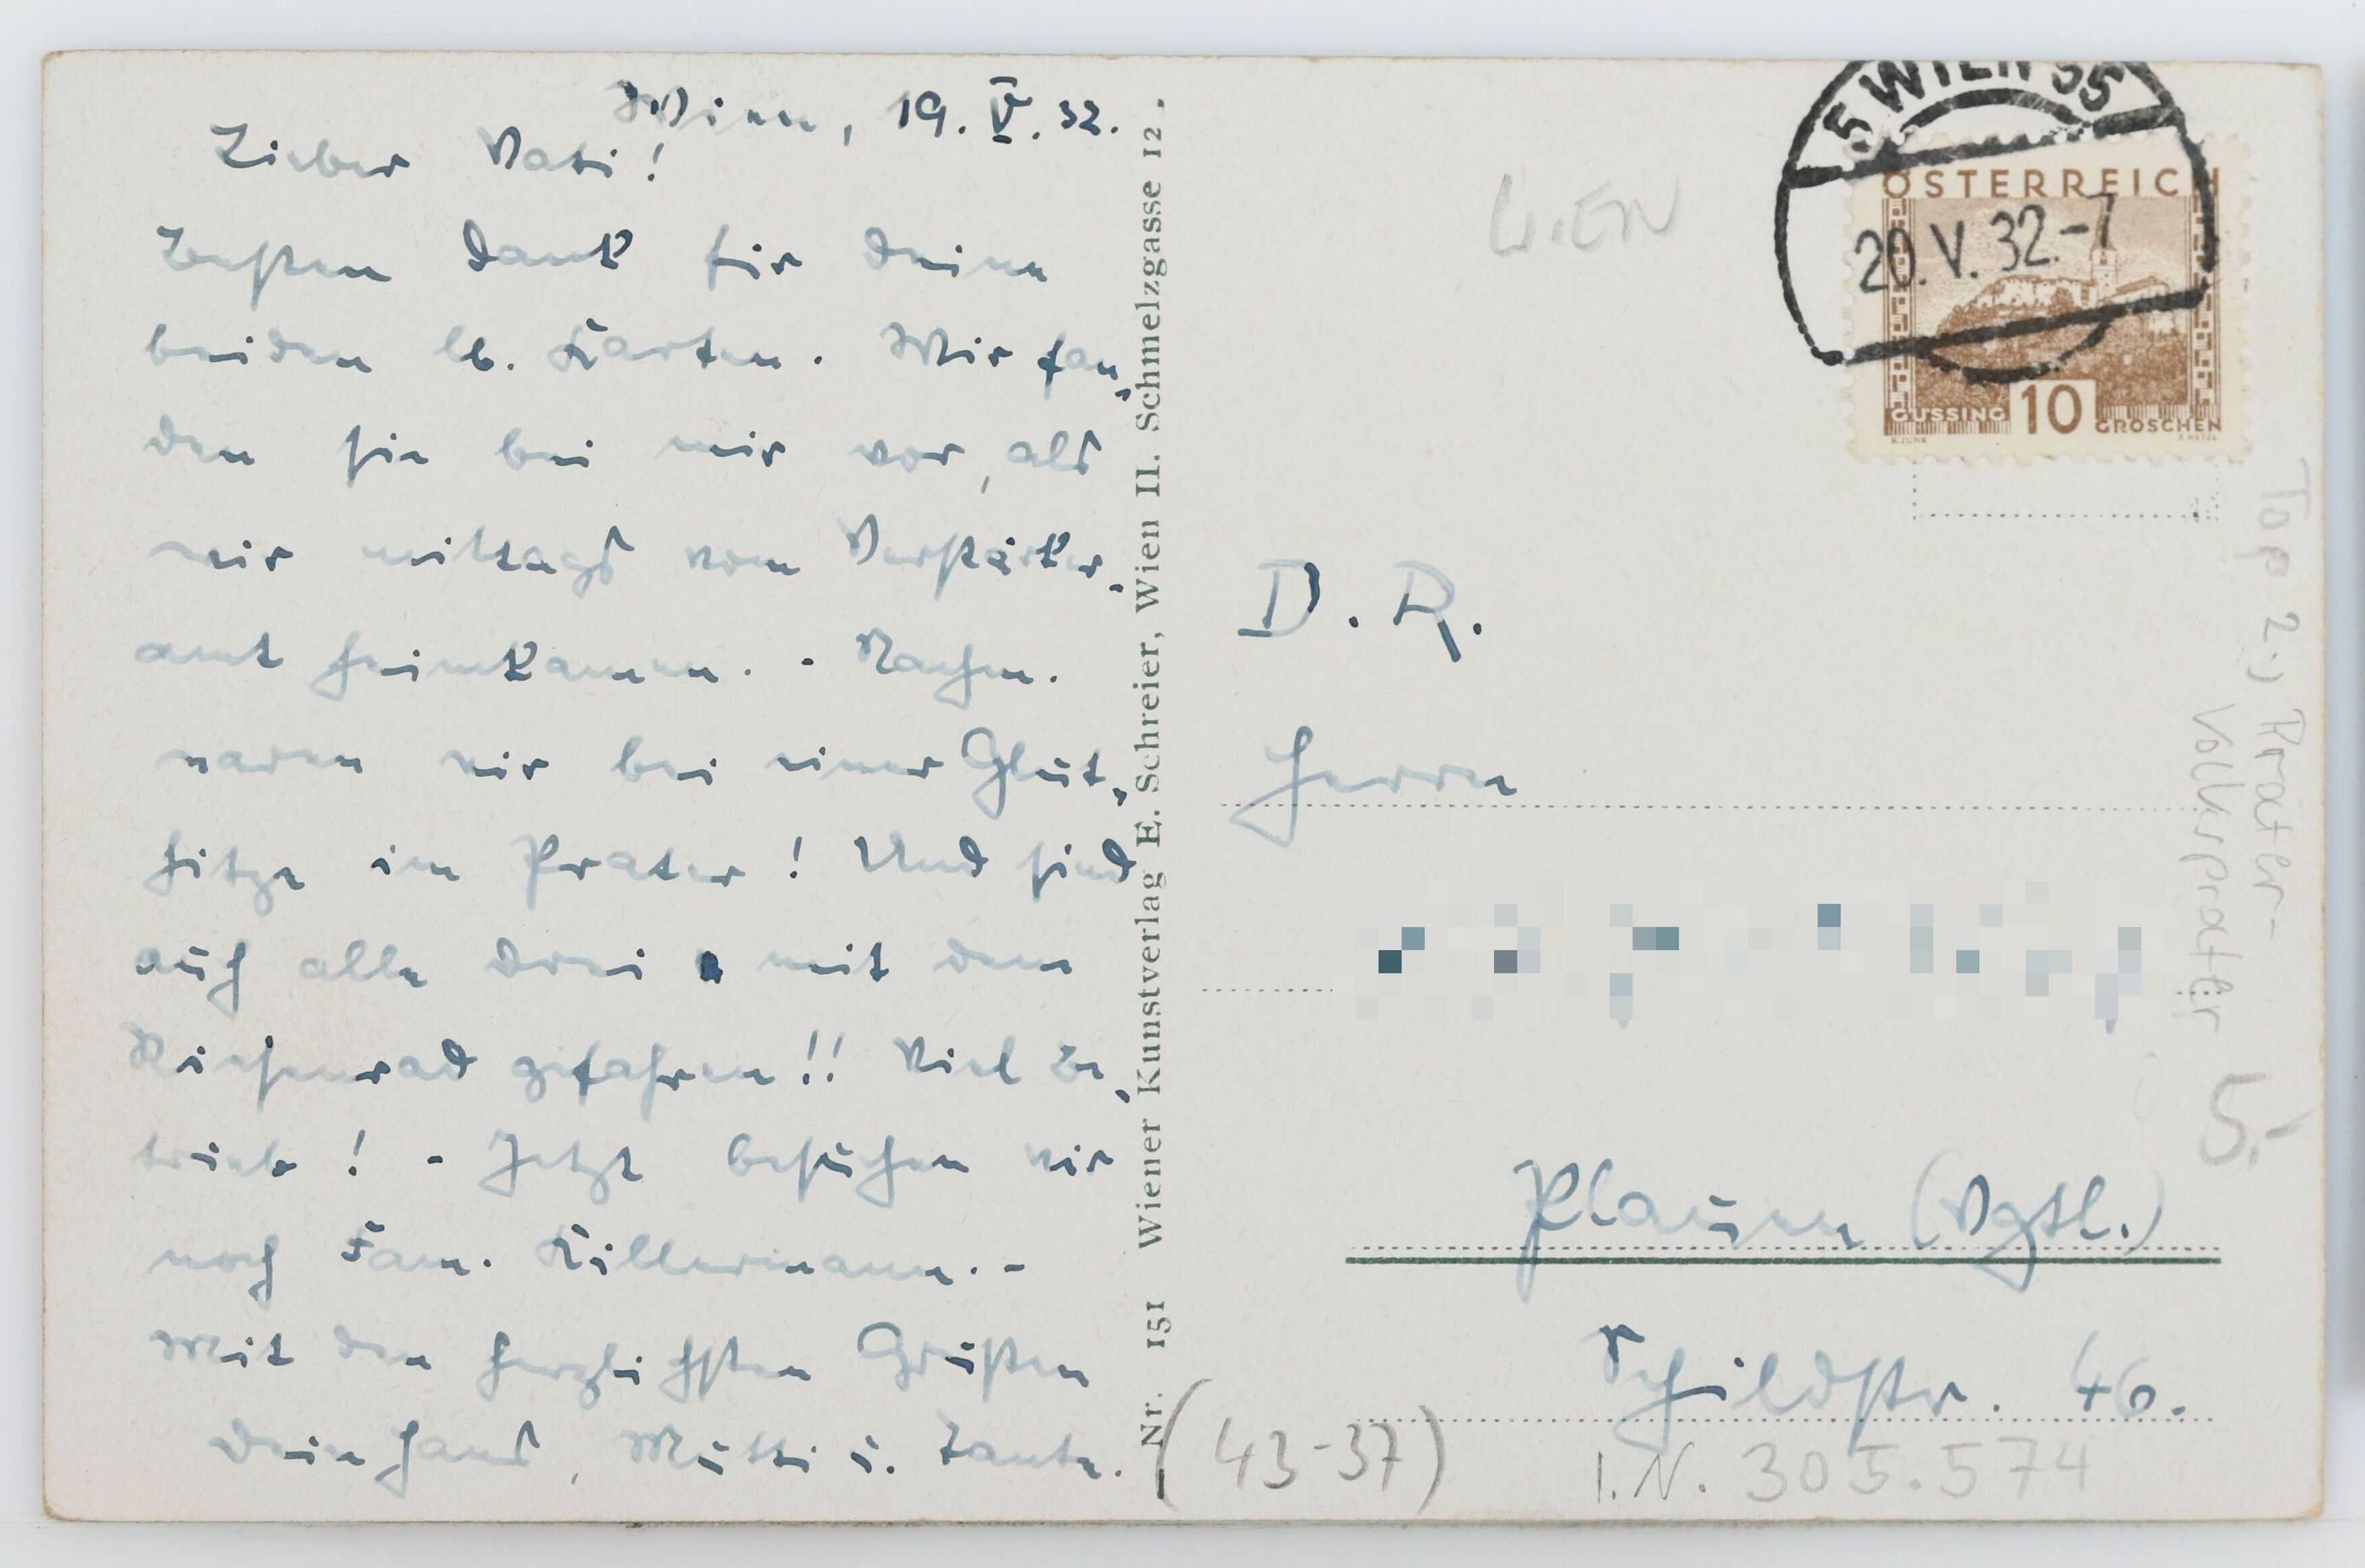 Wien, 19. V. 32.
Lieber Vati!
Besten Dank für Deine
beiden lb. Karten. Wir fan-
den sie bei mir vor, als
wir mittags vom Verstärker-
amt heimkamen. - Nachm.
waren wir bei einer Glut-
hitze im Prater! Und sind
auch alle drei mit dem
Riesenrad gefahren!! Viel Be-
trieb! - Jetzt besuchen wir
noch Fam. Killermann. -
Mit den herzlichsten Grüßen
Dein Hans, Mutti u. Tante.
Nr. 151 Wiener Kunstverlag E. Schreier, Wien II. Schmelzgasse 12.
WIEN
5 WIEN 55
20.V.32.-7
ÖSTERREICH
GÜSSING 10 GROSCHEN
D. R.
Herrn
Plauen (Vgtl.)
Schildstr. 46.
Top 2.) Prater-
Volksprater
5.-
(43-37)
I.N. 305.574